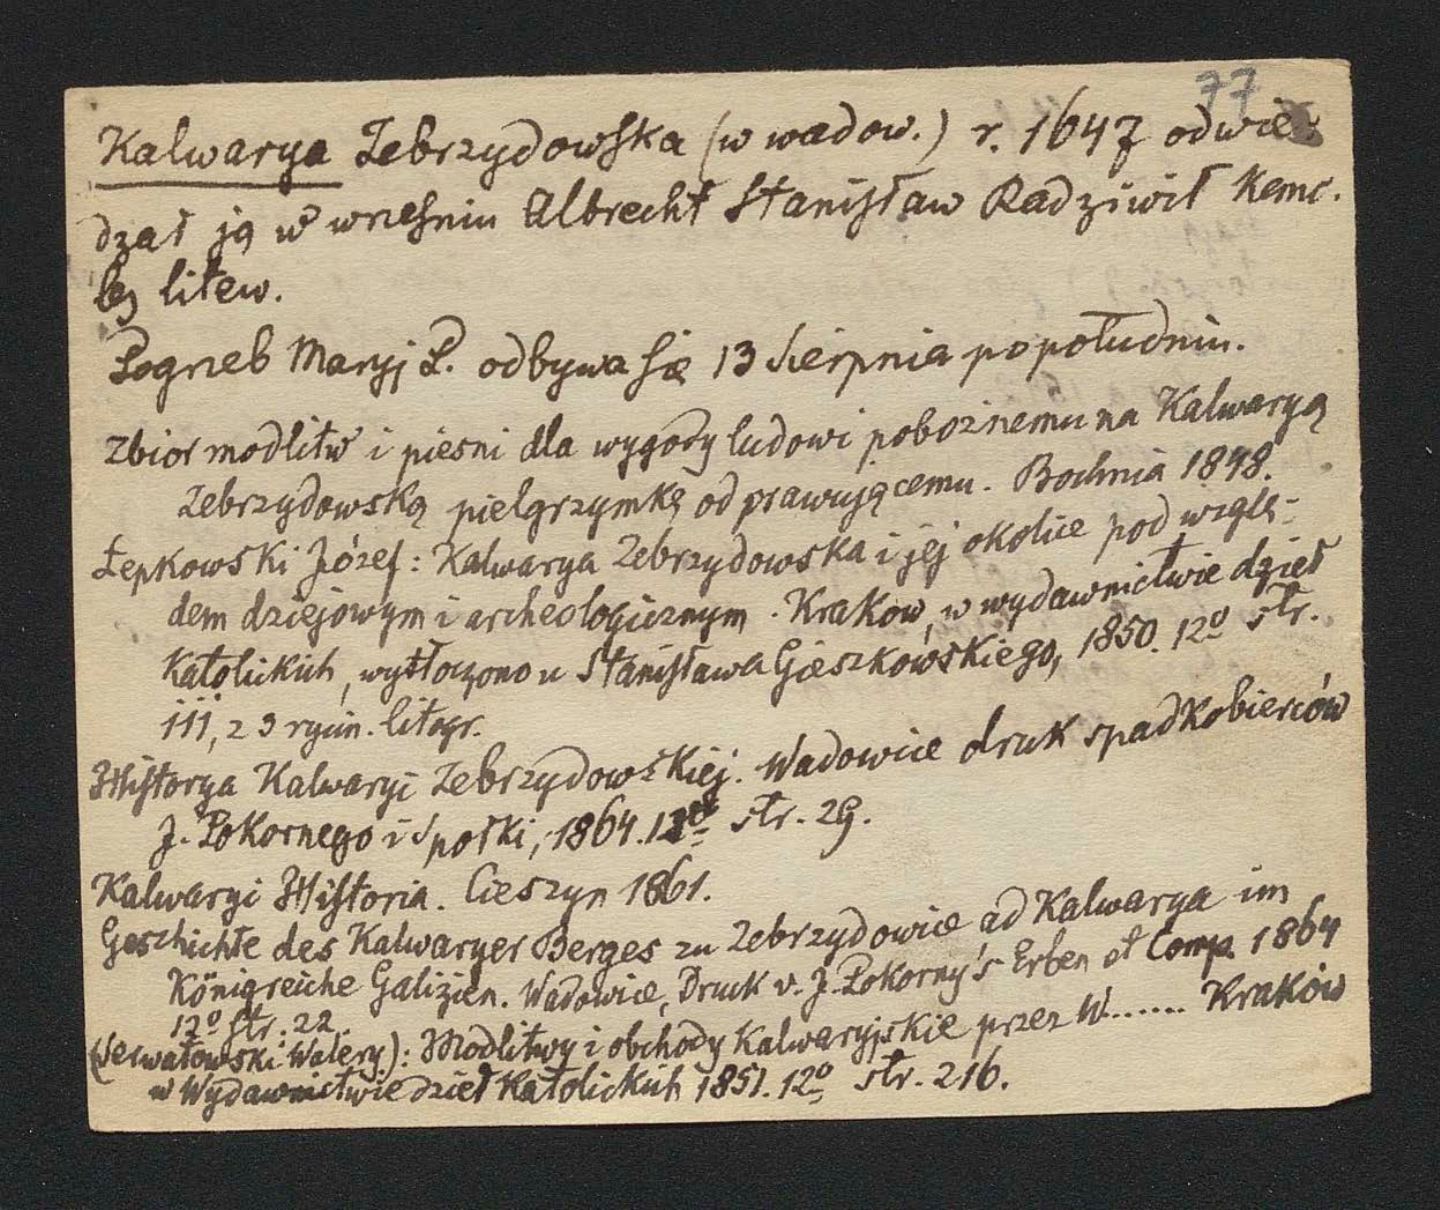 77
Kalwarya Zebrzydowska (w wadow.) r. 1647 odwie-
dzał ją w wrześniu Albrecht Stanisław Radziwił Kanc.
litew.
Pogrzeb Maryj P. odbywa się 13 Sierpnia popołudniu.
Zbior modlitw i piesni dla wygody ludowi pobożnemu na Kalwaryą
Zebrzydowską pielgrzymkę odprawującemu. Bochnia 1848.
Łepkowski Józef: Kalwarya Zebrzydowska i jej okolice pod wzglę-
dem dziejowym i archeologicznym. Krakow, w wydawnictwie dzieł
Katolickich, wytłoczono u Stanisława Gieszkowskiego, 1850. 12º str.
111, z 3 rycin. litogr.
Historya Kalwaryi Zebrzydowskiej. Wadowice druk spadkobierców
J. Pokornego i Społki, 1864. str. 29.
Kalwaryi Historia. Cieszyn 1861.
Geschichte des Kalwaryer Berges zu Zebrzydowice ad Kalwarya im
Königreiche Galizien. Wadowice, Druck v. J. Pokorny's Erben et Comp. 1864
12º str. 22.
(Serwatowski Walery): Modlitwy i obchody Kalwaryjskie przez W....... Kraków
w Wydawnictwie dzieł Katolickich 1851. 12º str. 216.